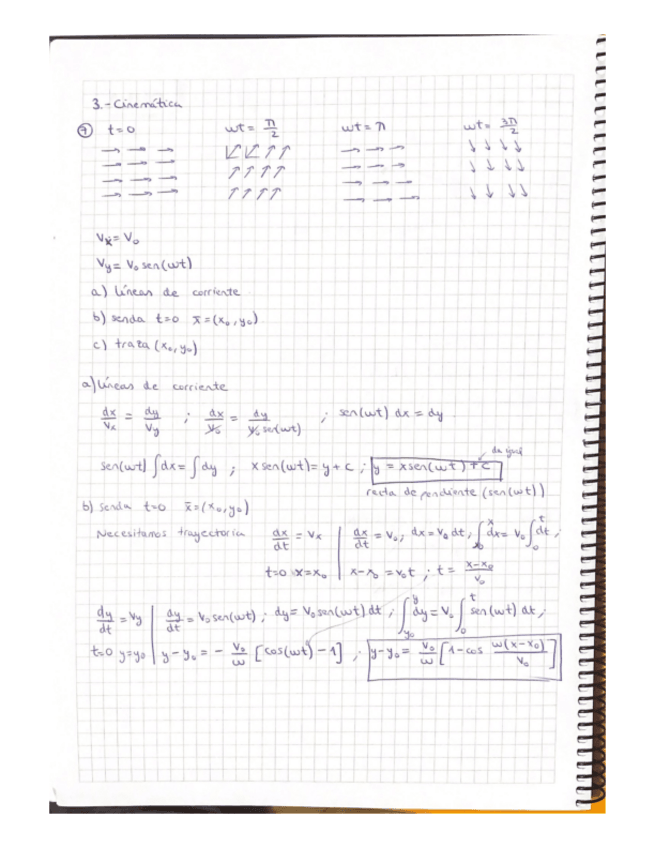 3.- Cinemática
7 t=0 wt= π/2 wt= π wt= 3π/2
Vx= V₀
Vy= V₀ sen(wt)
a) líneas de corriente
b) senda t=0 x̄=(x₀,y₀)
c) traza (x₀,y₀)
a) líneas de corriente
dx/Vx = dy/Vy ; dx/V₀ = dy/V₀ sen(wt) ; sen(wt) dx = dy
da igual
sen(wt) ∫dx = ∫dy ; x sen(wt) = y + c ; y = x sen(wt) + c
recta de pendiente (sen(wt))
b) senda t=0 x̄=(x₀,y₀)
Necesitamos trayectoria dx/dt = Vx | dx/dt = V₀; dx = V₀ dt, ∫ₓ₀ˣ dx = V₀ ∫₀ᵗ dt ;
t=0 x=x₀ | x-x₀ = V₀t ; t = x-x₀/V₀
dy/dt = Vy | dy/dt = V₀ sen(wt) ; dy = V₀ sen(wt) dt ; ∫y₀ʸ dy = V₀ ∫₀ᵗ sen(wt) dt ;
t=0 y=y₀ | y-y₀ = - V₀/ω [cos(wt) - 1] ; y-y₀ = V₀/ω [1-cos ω(x-x₀)/V₀]